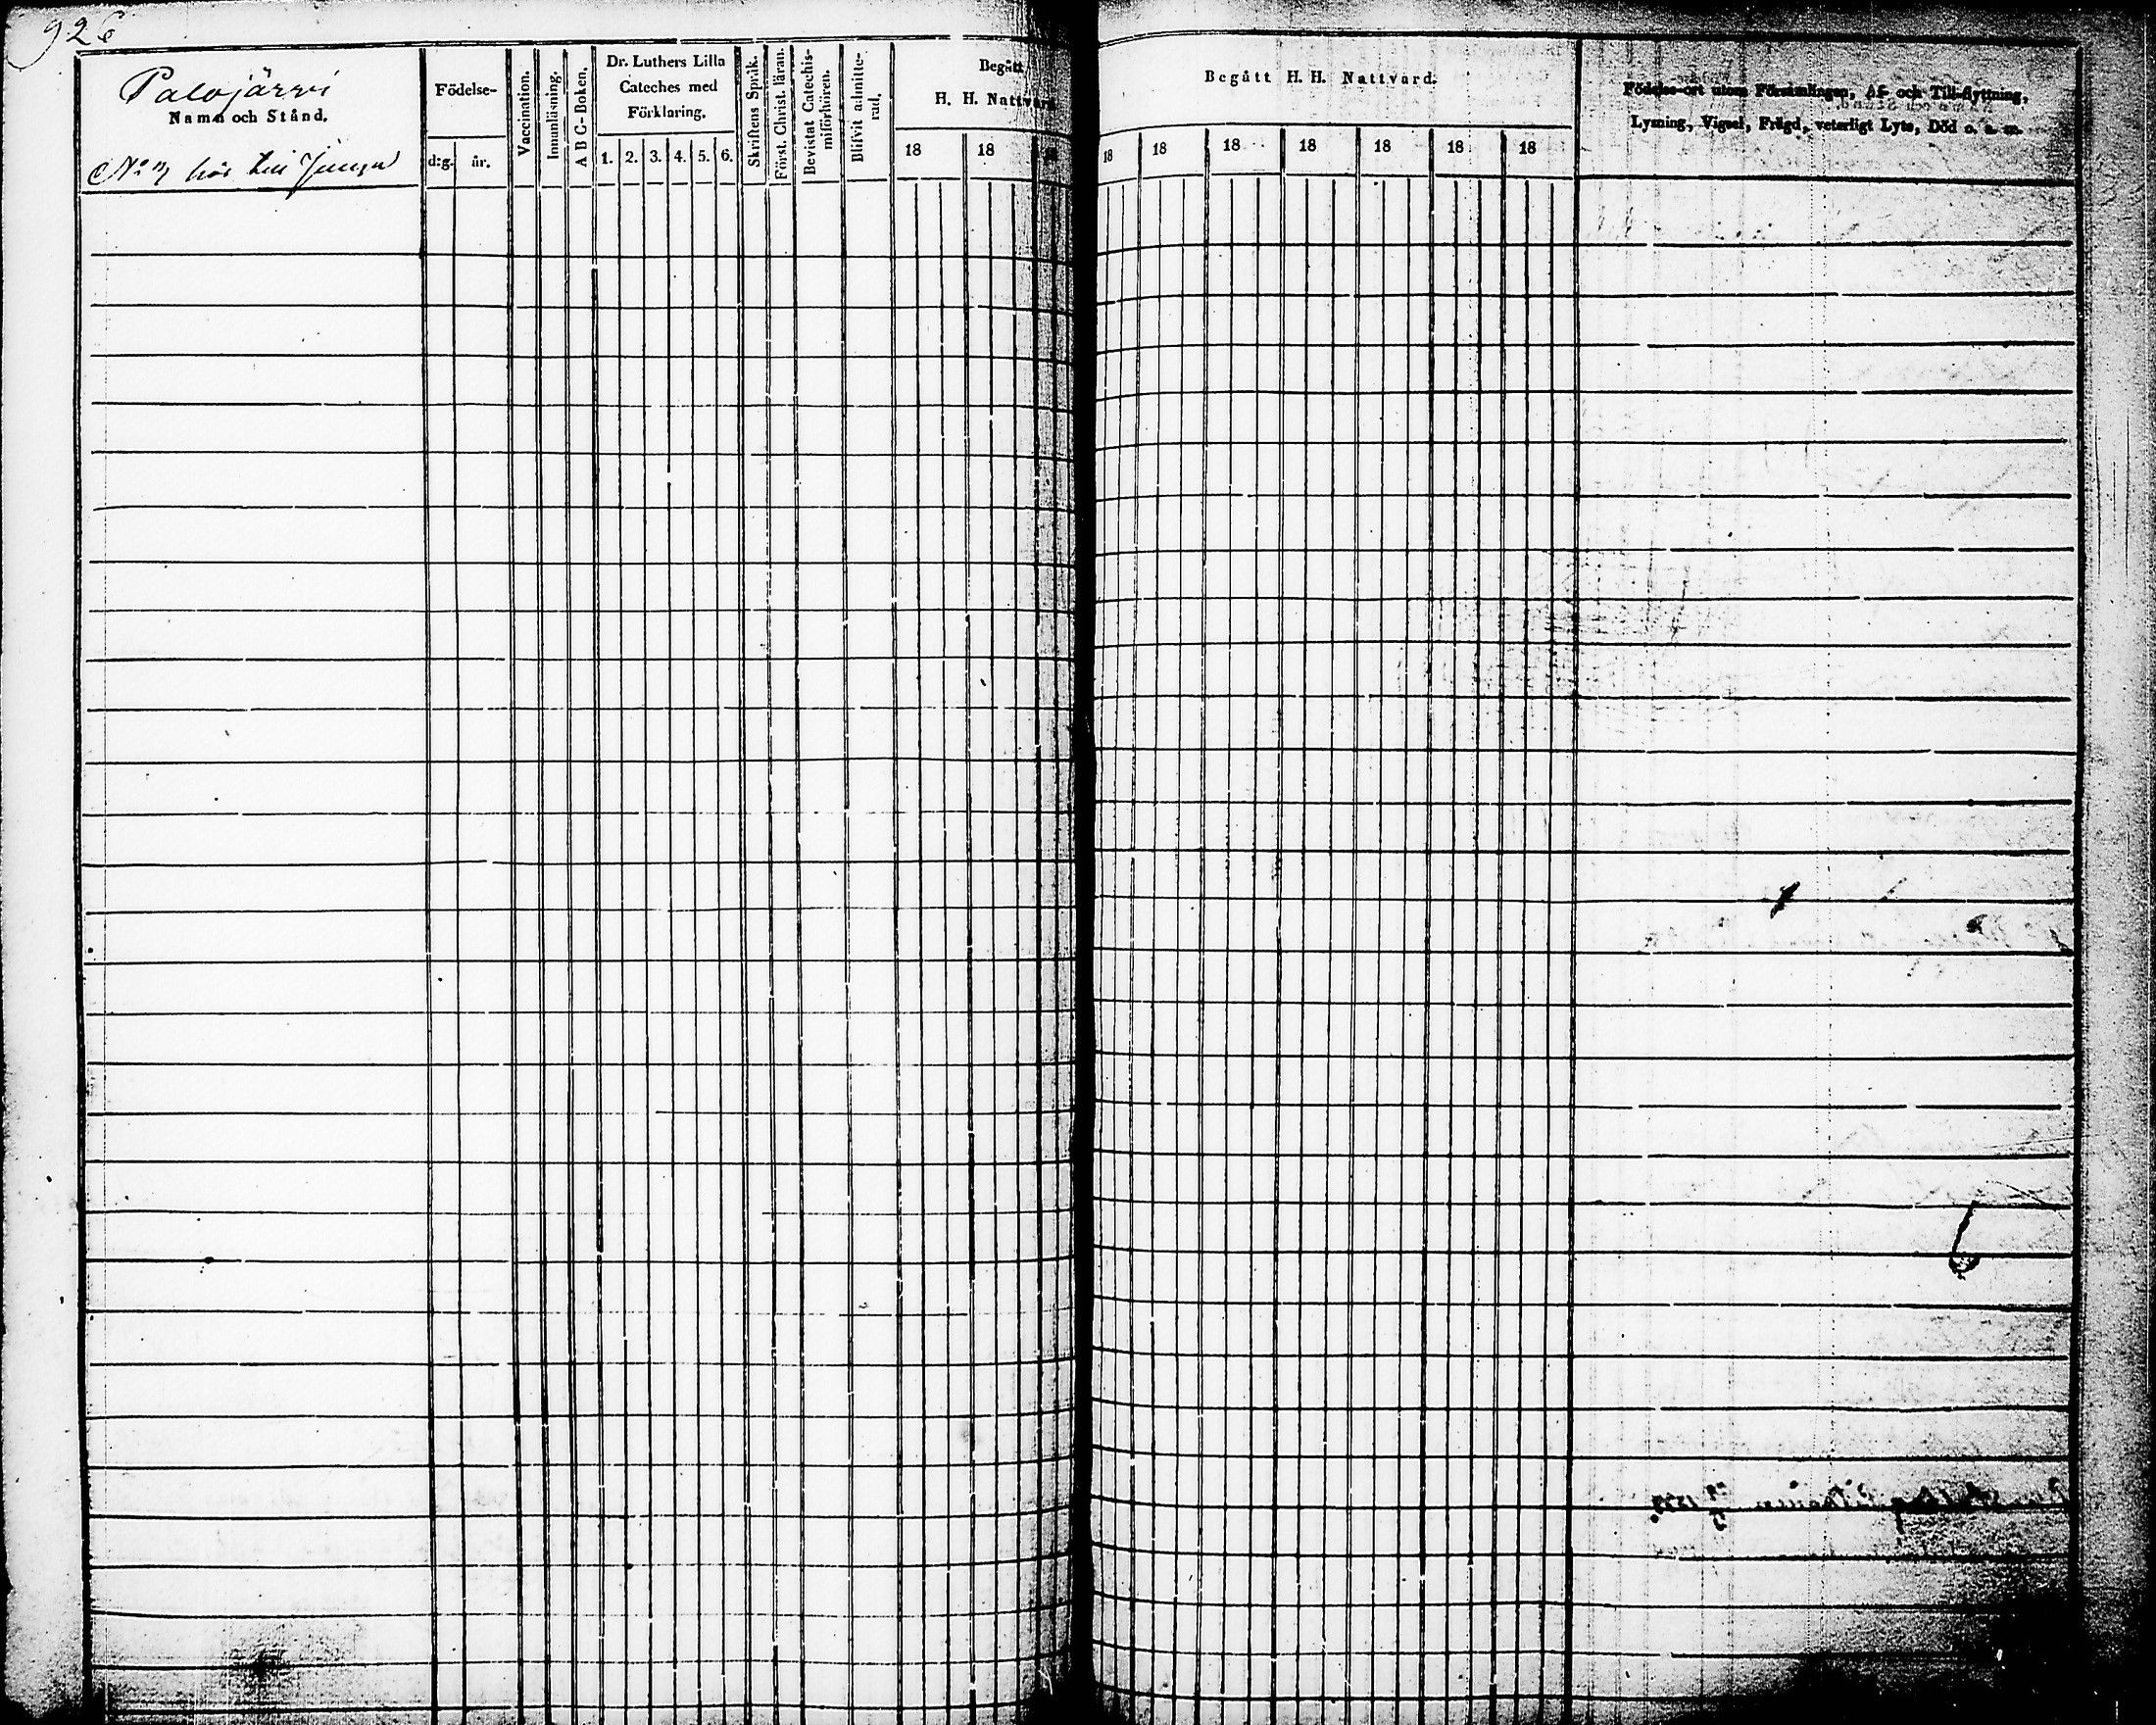 926
Palojärvi
Namn och Stånd.
No 7 hör till
Födelse-
d:g. år.
Vaccination.
Innanläsning.
A B C-Boken.
Dr. Luthers Lilla
Cateches med
Förklaring.
1. 2. 3. 4. 5. 6.
Skriftens Språk.
Först. Christ. läran.
Bevistat Catechis-
miförhören.
Blifvit admitte-
rad.
Begått
H. H. Nattvard
18 18 18
Begått H. H. Nattvard.
18 18 18 18 18 18 18
Födelse-ort utom Församlingen, Af- och Till-flyttning,
Lysning, Vigsel, Frägd, veterligt Lyte, Död o. s. m.